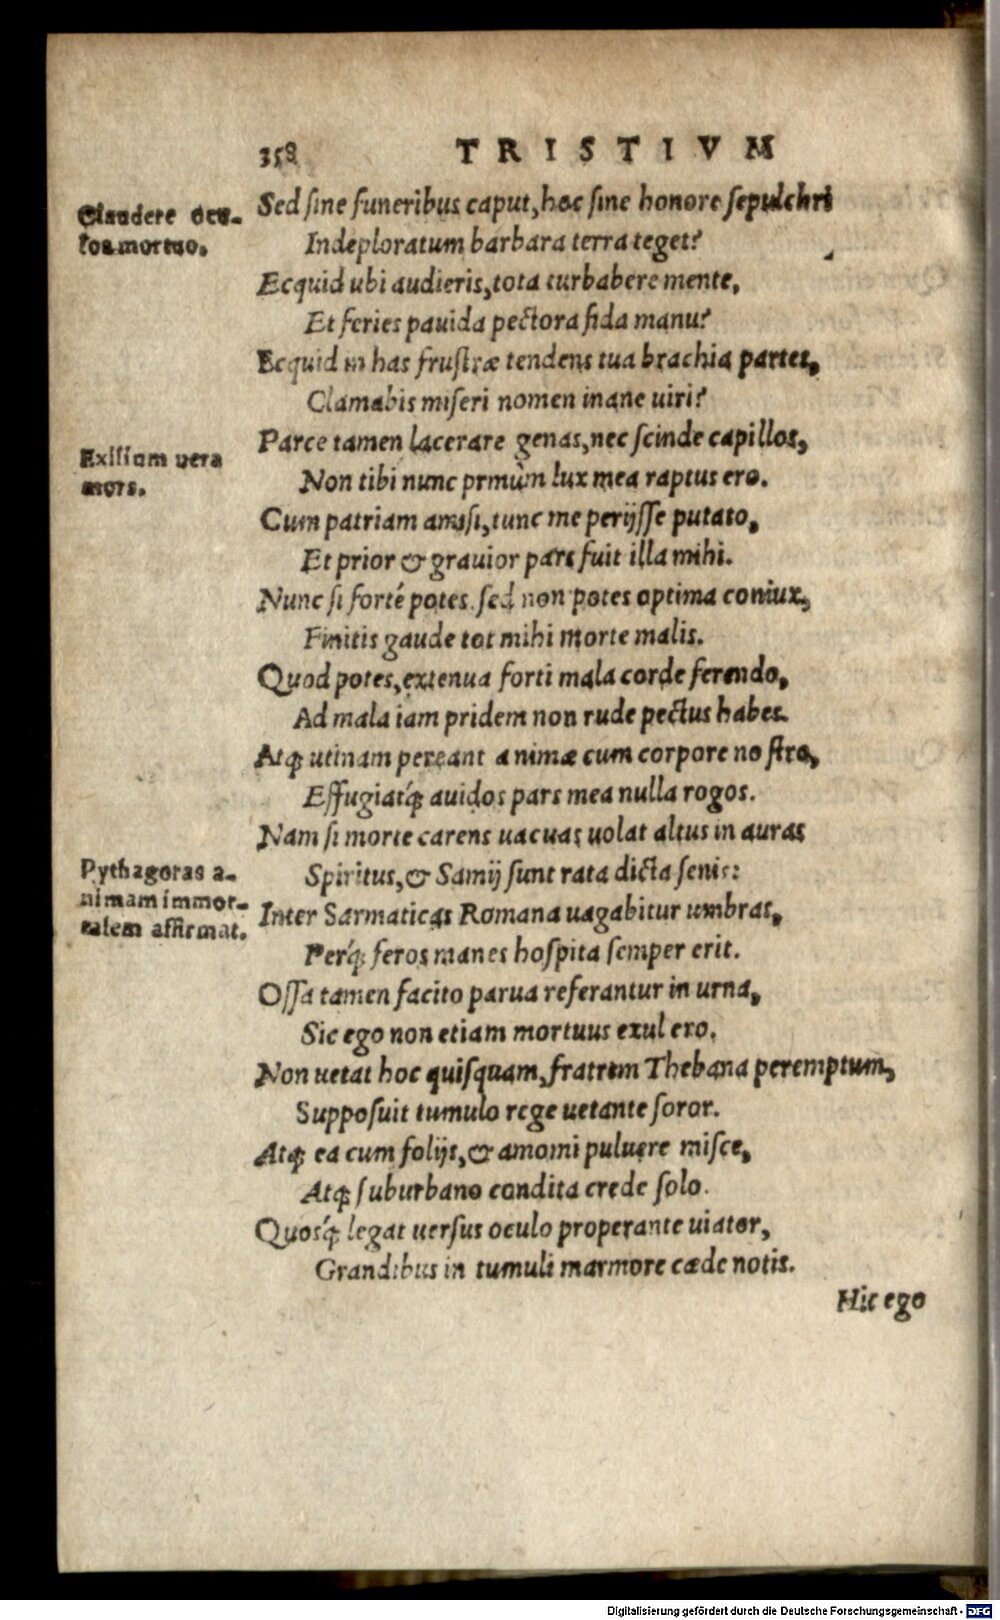 358 TRISTIVM
Claudere ocu-
los mortuo.
Sed sine funeribus caput, hoc sine honore sepulchri
Indeploratum barbara terra teget?
Ecquid ubi audieris, tota turbabere mente,
Et feries pauida pectora fida manu?
Ecquid in has frustræ tendens tua brachia partes,
Clamabis miseri nomen inane uiri?
Exilium vera
mors.
Parce tamen lacerare genas, nec scinde capillos,
Non tibi nunc prmùm lux mea raptus ero.
Cum patriam amisi, tunc me perijsse putato,
Et prior & grauior pars fuit illa mihi.
Nunc si forté potes. sed non potes optima coniux,
Finitis gaude tot mihi morte malis.
Quod potes, extenua forti mala corde ferendo,
Ad mala iam pridem non rude pectus habes.
Atq; utinam pereant animæ cum corpore nostro,
Effugiatq́; auidos pars mea nulla rogos.
Nam si morte carens uacuas uolat altus in auras
Pythagoras a-
nimam immor-
talem affirmat.
Spiritus, & Samij sunt rata dicta senis:
Inter Sarmaticas Romana uagabitur umbras,
Perq́; feros manes hospita semper erit.
Ossa tamen facito parua referantur in urna,
Sic ego non etiam mortuus exul ero.
Non uetat hoc quisquam, fratrem Thebana peremptum,
Supposuit tumulo rege uetante soror.
Atq; ea cum folijs, & amomi puluere misce,
Atq; suburbano condita crede solo.
Quosq́; legat uersus oculo properante uiator,
Grandibus in tumuli marmore cæde notis.
Hic ego
Digitalisierung gefördert durch die Deutsche Forschungsgemeinschaft - DFG